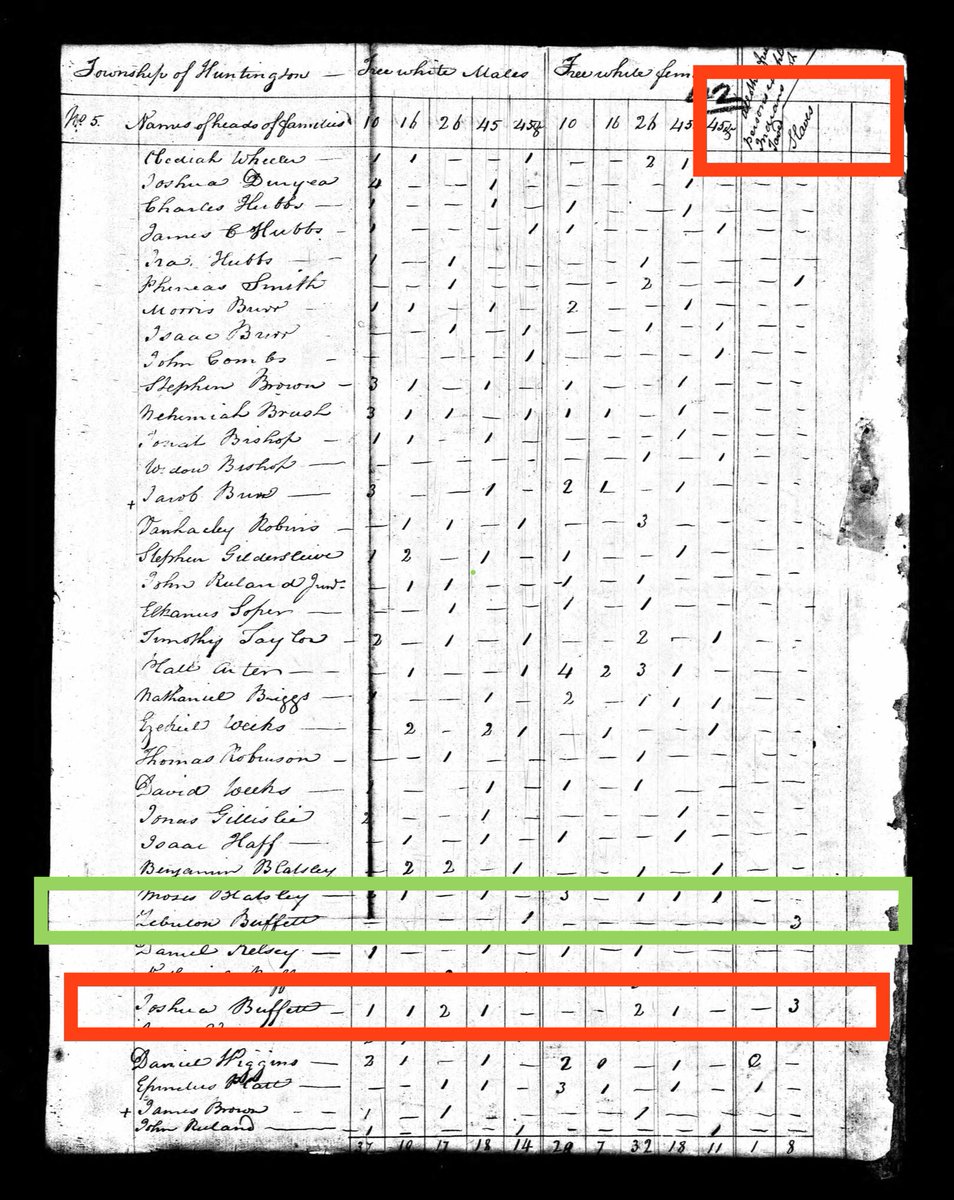 Township of Huntington — Free white Males Free white fem
No 5. Names of heads of families 10 16 26 45 45& 10 16 26 45 45& Slaves
Obediah Wheeler — 1 1 — — 1 — — 2 1
Joshua Duryea 4 — — 1 — — — — 1 — — —
Charles Hubbs — 1 — — 1 — 1 — — 1 — — —
James C Hubbs - 1 — — — 1 1 — — — 1 — —
Ira Hubbs — 1 — 1 — — — — 1 — — — —
Phineas Smith — — 1 — — — — 2 — — — 1
Morris Burr 1 1 — 1 — 2 — — 1 — — —
Isaac Burr — — 1 — 1 — — 1 — 1 — —
John Combs — — — — 1 — — — — 1 — —
Stephen Brown — 3 1 — 1 — 1 — — 1 — — —
Nehemiah Brush 3 1 1 — 1 1 1 — 1 — — —
Jonat Bishop 1 1 — 1 — — — — 1 — — —
Widow Bishop — — — — — — — — 1 — 1 — —
+ Jacob Burr — 3 — — 1 — 2 1 — 1 — — —
Robins — — 1 1 — 1 — — 3 — — — —
Stephen Gildersleeve 1 2 — 1 — 1 — — 1 — — —
John Ruland Junr. — 1 1 — — 1 — 1 — — — —
Elkanus Soper — — — 1 — — 1 — 1 — — — —
Timothy Taylor — 2 — 1 — 1 — — 2 — 1 — —
— — 1 — — 1 4 2 3 1 — — —
Nathaniel Briggs — 1 — — 1 — 2 — 1 1 1 — —
Ezekiel Weeks — 2 — 2 1 — 1 — — 1 — —
Thomas Robinson — — — 1 — — — — 1 — — — —
David Weeks 1 — — 1 — 1 — 1 — — — —
Jonas Gillislie 2 — — 1 — — — — 1 — — —
Isaac Haff — — 1 — 1 — 1 — — 1 — — —
Benjamin Blatsley — 2 2 — 1 — — 1 — 1 — —
Moses Blatsley — 1 — 1 — 3 — 1 1 1 — —
Zebulon Buffett — — — — 1 — — — — — — 3
Daniel Kelsey — 1 — — 1 — 1 — 1 — — — —
Joshua Buffett — 1 1 2 1 — — — 2 1 — — 3
Daniel Wiggins — 2 1 — 1 — 2 0 — 1 — 0 —
Platt — — 1 1 — 3 1 — 1 — 1 —
+ James Brown 1 — 1 — — — — 1 — — — —
John Ruland — 1 — — — 1 — — — — 1 — —
37 18 14 7 32 18 11 1 8